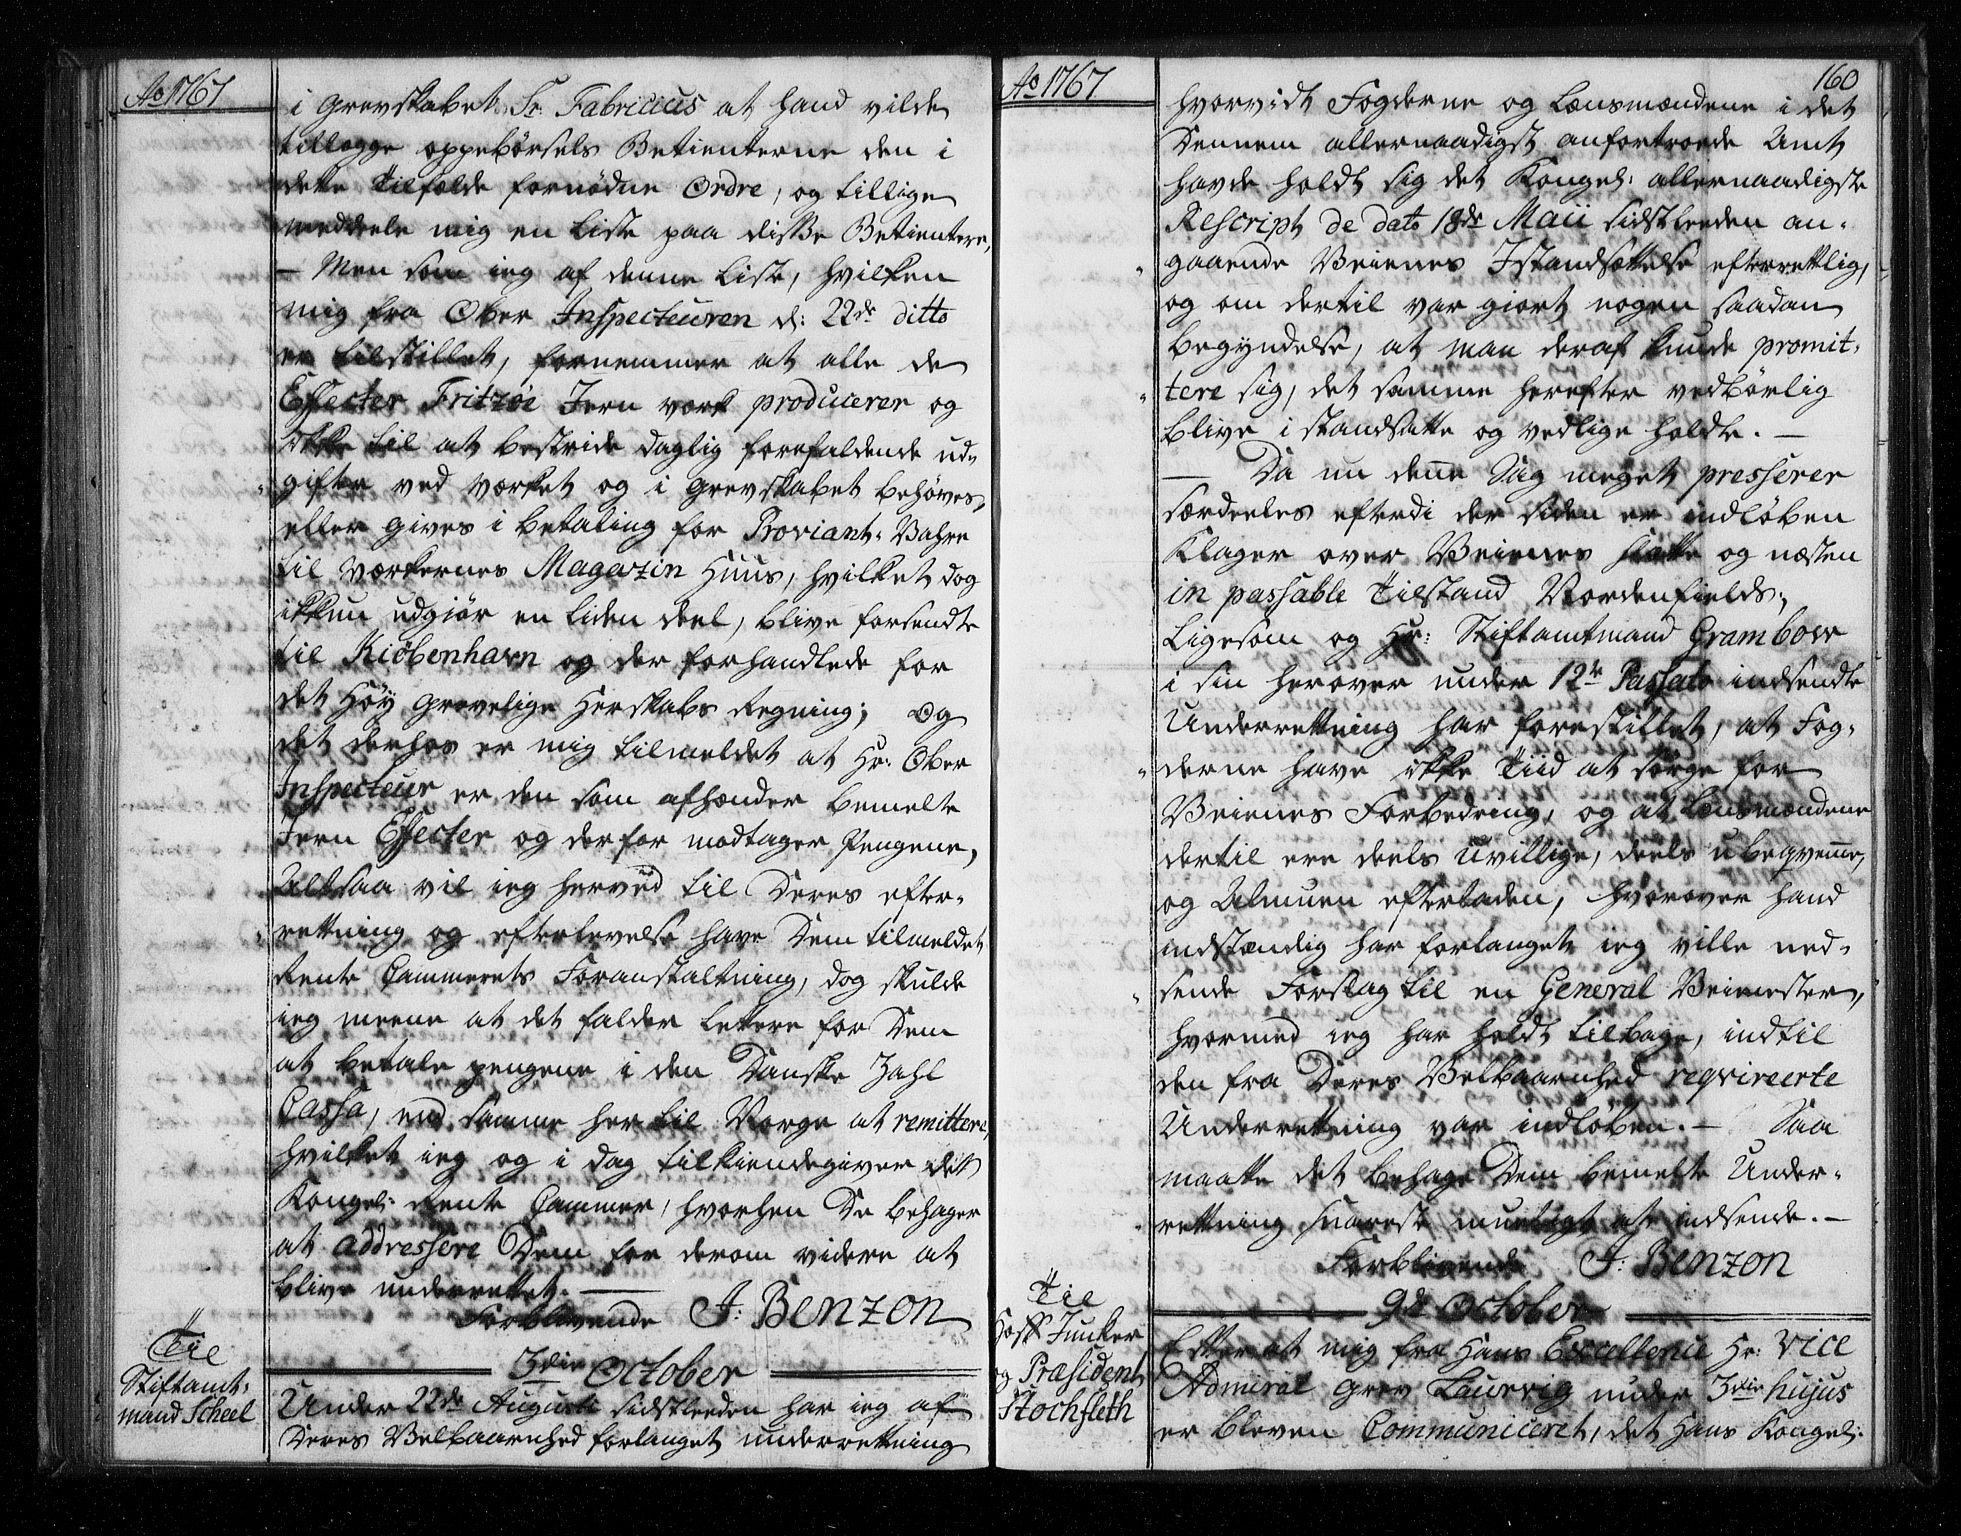 Ao 1767
i Grevskabet Sr. Fabricius at hand vilde
tillegge oppebörsels Betienterne den i
dette Tilfælde fornödne Ordre, og tillige
meddeele mig en Liste paa disse Betientere,
– Men som ieg af denne Liste, hvilken
mig fra Ober Inspecteuren d: 22de ditto
er tilstillet, fornemmer at alle de
Effecter Fritzöe Jern værk producerer og
ikke til at bestride daglig forefaldende ud-
gifter ved værket og i Grevskabet behöves,
eller gives i betaling for Proviant-Vahre
til værkernes Magazin Huus, hvilket dog
ikkun udgiör en liden deel, blive forsendte
til Kiöbenhavn og der forhandlede for
det Höy Grevelige Herskabs Regning; og
det derhos er mig tilmeldet at Hr: Ober
Inspecteur er den som afhænder bemelte
Jern Effecter og derfor modtager Pengene,
Altsaa vil ieg herved til Deres efter-
rettning og efterlevelse have Dem tilmeldet
Rente Cammerets Foranstaltning, dog skulde
ieg meene at det falder lettere for Dem
at betale pengene i den Danske Zahl
Cassa, end samme her til Norge at remittere,
hvilket ieg og i dag tilkiendegiver det
Kongel: Rente Cammer, hvorhen De behager
at addressere Dem for derom videre at
blive underrettet. —
Forblivende J: Benzon
3die October
Til
Stiftamt-
mand Scheel
Under 22de Augusti sidstleeden har ieg af
Deres Velbaarnhed forlanget underrettning
Ao 1767
160
hvorvidt Fogderne og Lensmændene i det
Dennem allernaadigst anfortroede Amt
havde holdt sig det Kongel: allernaadigste
Rescript de dato 18de Maii sidstleeden an-
gaaende Veienes Istandsættelse efterrettlig,
og om dertil var giort nogen saadan
begyndelse, at man deraf kunde promit-
tere sig, det samme herefter vedbörlig
blive i standsatte og vedlige holdte. —
— Da nu denne Sag meget presserer
særdeeles efterdi der siden er indlöben
Klager over Veienes slette og næsten
in passable Tilstand Nordenfields;
Ligesom og Hr: Stiftamtmand Grambow
i sin herover under 12te Passato indsendte
Underrettning har forestillet, at Fog-
derne have ikke Tiid at sörge for
Veienes Forbedring, og at Lensmændene
dertil ere deels uvillige, deels ubeqvemme,
og Almuen efterladen, hvorover hand
indstændig har forlanget ieg ville ned-
sende Forslag til en General Veimester,
hvormed ieg har holdt tilbage, indtil
den fra Deres Velbaarnhed reqvireerte
Underrettning var indlöben. — Saa
maatte det behage Dem bemelte Under-
rettning snarest mueligst at indsende. —
Forblivende J: Benzon
9de October
Til
Hoff Juncker
og Præsident
Stochfleth
Efter at mig fra Hans Excellence Hr: Vice
Admiral Grev Laurvig under 3die hujus
er bleven Communiceret, det Hans Kongel: